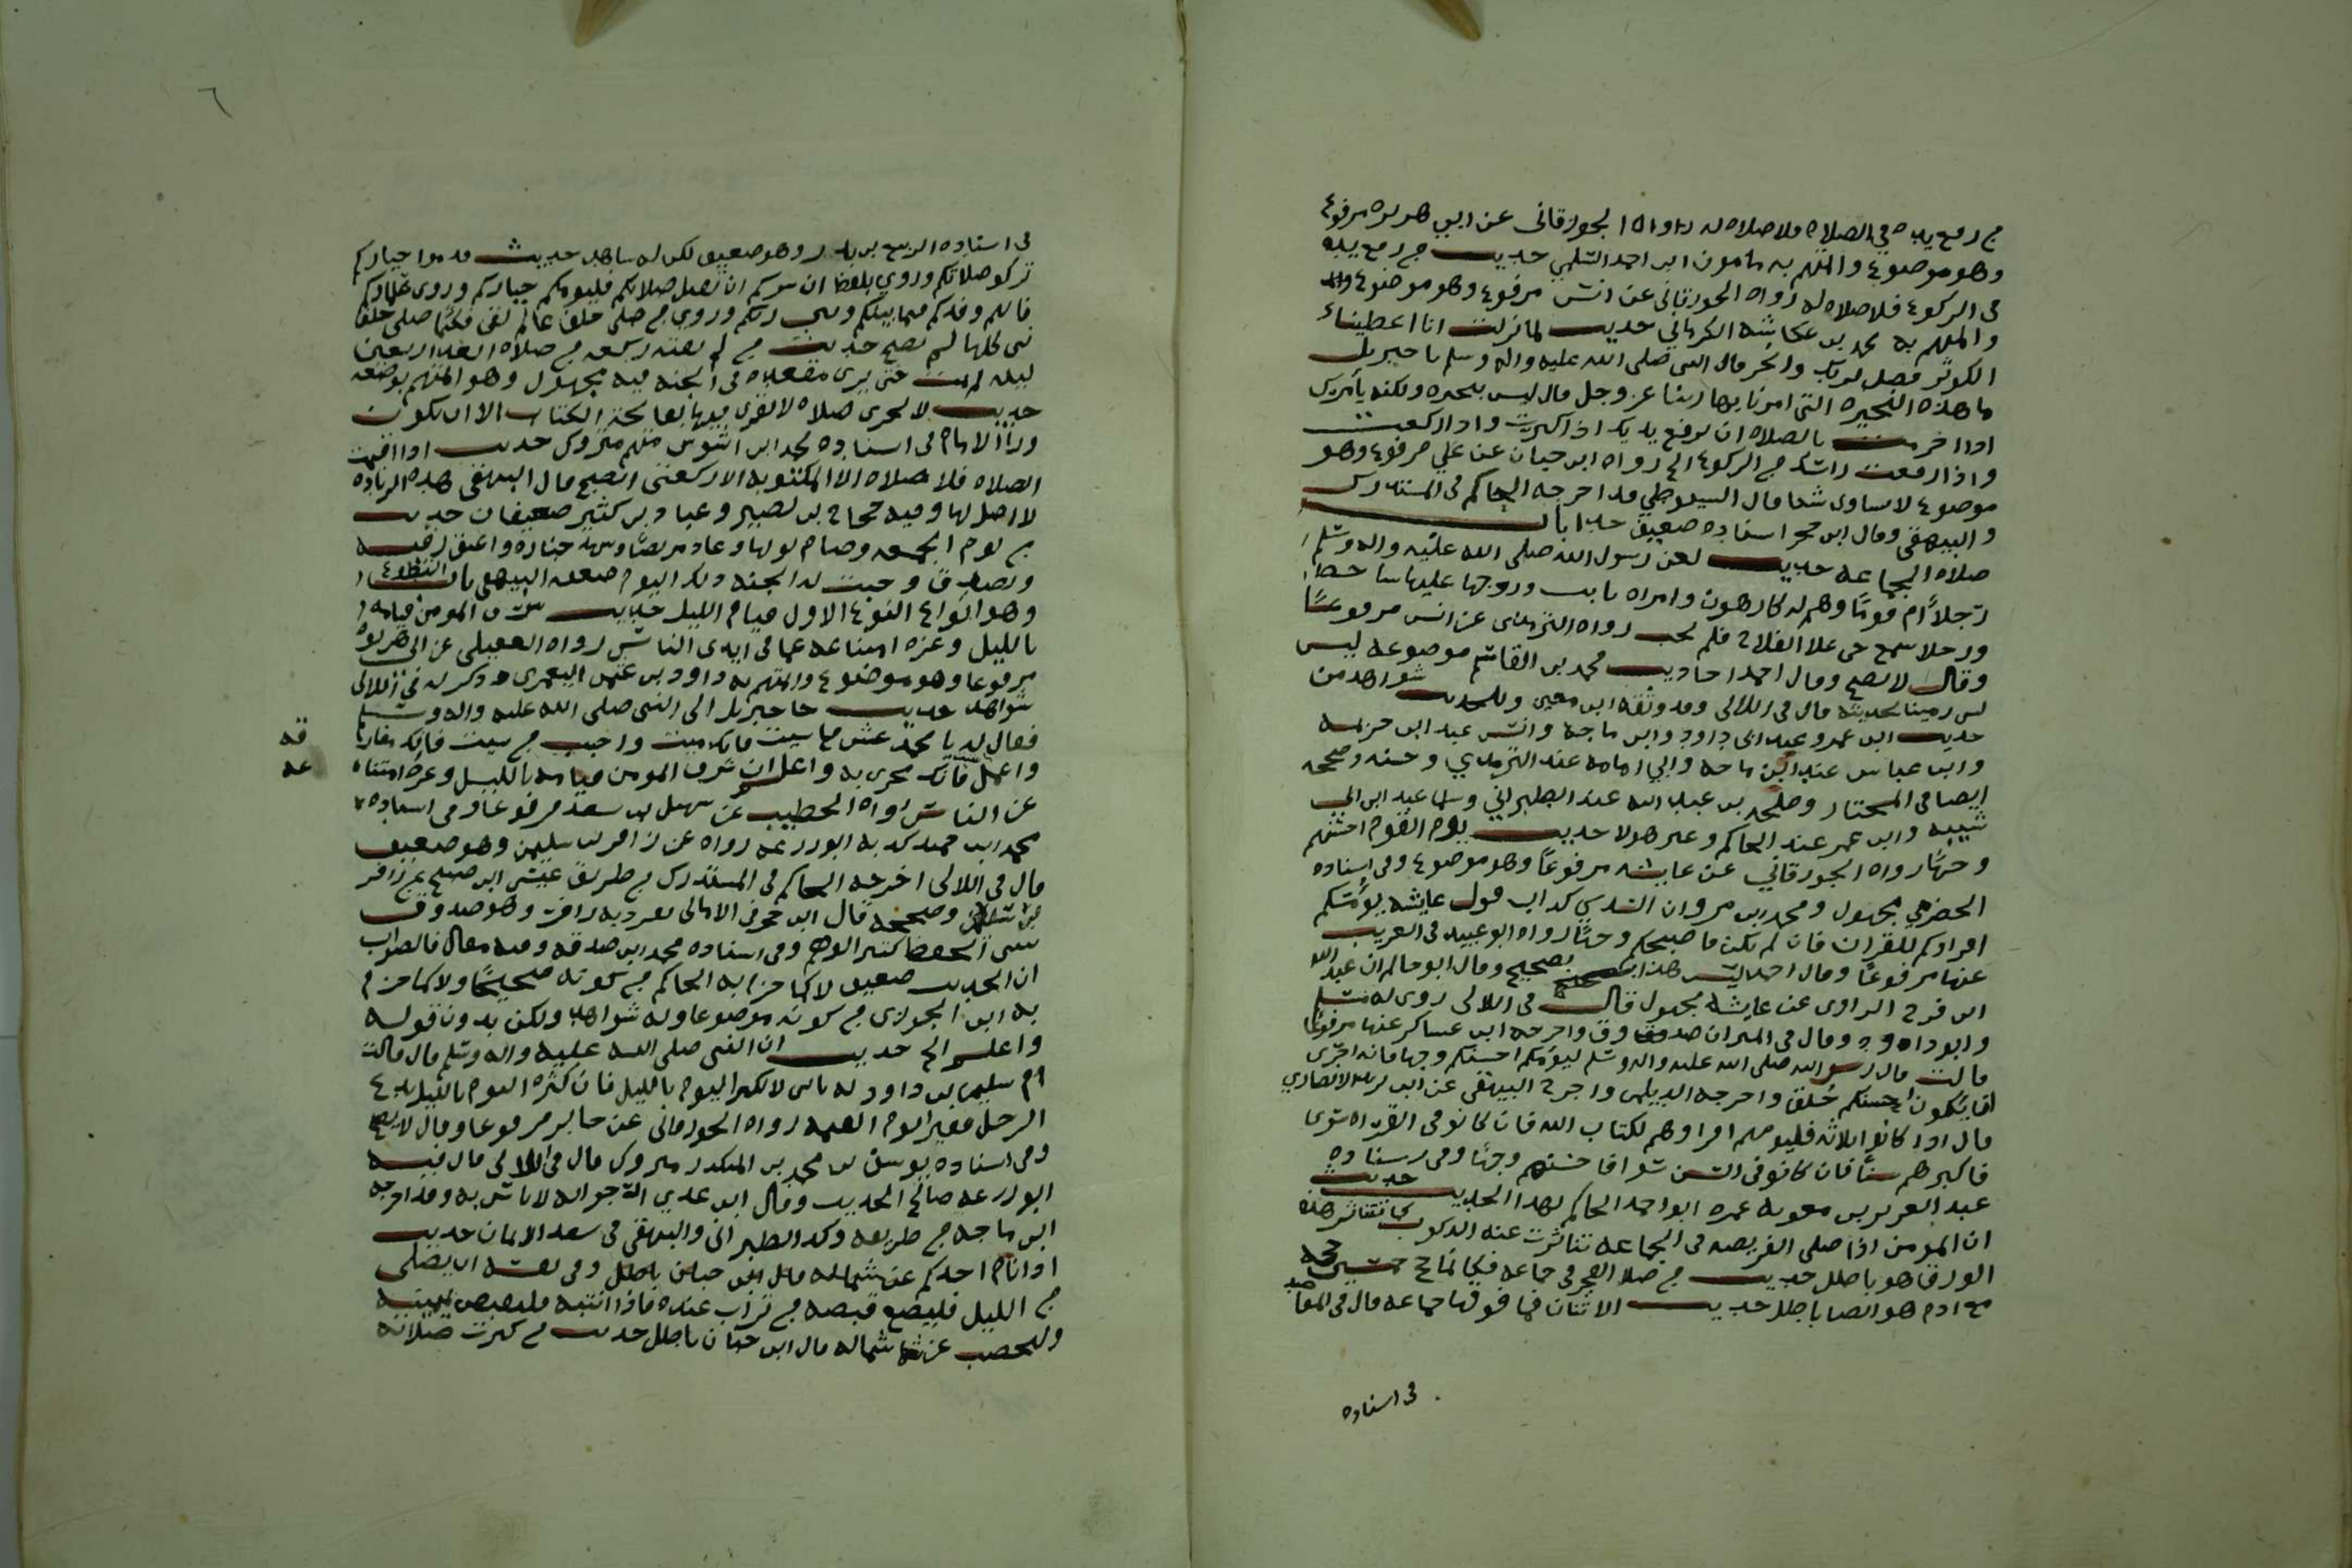 من رفع يديه في الصلاه فلا صلاه له رواه الجوزقانى عن ابي هريره مرفوع
وهو موضوع والمتهم به مامون ابن احمد السلمي حديث من رفع يديه
فى الركوع فلا صلاه له رواه الجوزقانى عن انس مرفوع وهو موضوع
والمتهم به محمد بن عكاشه الكرماني حديث لما نزلت انا اعطيناك
الكوثر فصل لربك وانحر قال النبى صلى الله عليه واله وسلم يا جبريل
ما هذه النحيره التى امرنا بها ربنا عز وجل قال ليس بنحيره ولكنه يأمرك
اذا احرمت بالصلاه ان ترفع يديك اذا كبرت واذا ركعت
واذا رفعت راسك من الركوع الخ رواه ابن حبان عن علي مرفوع وهو
موضوع لا يساوى شيا قال السيوطي قد اخرجه الحاكم فى المستدرك
والبيهقى وقال ابن حجر اسناده ضعيف جدا باب
صلاه الجماعه حديث لعن رسول الله صلى الله عليه واله وسلم
رجلاً ام قومًا وهم له كارهون وامراه باتت وزوجها عليها ساخط
ورجلا سمع حى على الفلاح فلم يجب رواه الترمذى عن انس مرفوعًا
وقال لا يصح وقال احمد احاديث محمد بن القاسم موضوعه ليس
بشى رمينا بحديثه قال فى اللالى وقد وثقه ابن معين وللحديث شواهد من
حديث ابن عمرو عند ابى داود وابن ماجه وانس عند ابن خزيمه
وابن عباس عند ابن ماجه وابي امامه عند الترمذي وحسنه وصححه
ايضا فى المختار وطلحه بن عبيد الله عند الطبراني وسلمان عند ابن ابى
شيبه وابن عمر عند الحاكم وغير هولا حديث يؤم القوم احسنهم
وجهًا رواه الجوزقاني عن عايشه مرفوعاً وهو موضوع وفى اسناده
الحضرمي مجهول ومحمد بن مروان السدي كذاب قول عايشه يؤمكم
اقراوكم للقران فان لم يكن فاصبحكم وجهًا رواه ابو عبيد فى الغريب
عنها مرفوعًا وقال احمد ليس هذا بصحيح وقال ابو حاتم ان عبد الله
ابن فروخ الراوى عن عايشه مجهول قال فى اللالى روى له مسلم
وابو داود وقال فى الميزان صدوق واخرجه ابن عساكر عنها مرفوعًا
قالت قال رسول الله صلى الله عليه واله وسلم ليؤمكم احسنكم وجها فانه احرى
ان يكون احسنكم خلقا واخرجه الديلمى واخرج البيهقى عن ابى زيد الانصاري
قال اذا كانوا ثلاثه فليومهم اقراوهم لكتاب الله فان كانو فى القراه سوى
فاكبرهم سنًا فان كانو فى السن سوا فاحسنهم وجهًا وفى اسناده
عبد العزيز بن معويه غمزه ابو احمد الحاكم بهذا الحديث حديث
ان المومن اذا صلى الفريضه فى الجماعه تناثرت عنه الذنوب كما يتناثر هذا
الورق هو باطل حديث من صلا الفجر فى جماعه فكانما حج خمسين حجه
مع ادم هو ايضا باطل حديث الاثنان فما فوقها جماعه قال فى المقاصد
فى اسناده
٦
فى اسناده الربيع بن بدر وهو ضعيف لكن له شاهد حديث قدموا خياركم
تزكو صلاتكم وروي بلفظ ان سركم ان تقبل صلاتكم فليومكم خياركم وروى علماوكم
فانهم وفدكم فيما بينكم وبين ربكم وروي من صلى خلف عالم تقى فكانما صلى خلف
نبى كلها لم تصح حديث من لم تفته ركعه من صلاه الغداه اربعين
ليله لم يمت حتى يرى مقعده فى الجنه فيه مجهول وهو المتهم بوضعه
حديث لا تجزى صلاه لا يقرى فيها بفاتحه الكتاب الا ان تكون
وراء الامام فى اسناده محمد ابن اشرس متهم متروك حديث اذا اقيمت
الصلاه فلا صلاه الا المكتوبه الا ركعتى الصبح قال البيهقى هذه الزياده
لا اصل لها وفيه حجاج بن نصير وعباد بن كثير ضعيفان حديث
من يوم الجمعه وصام يومها وعاد مريضًا وشهد جنازه واعتق رقبه
وتصدق وجبت له الجنه ذلك اليوم ضعفه البيهقى باب التطوع
وهو انواع النوع الاول قيام الليل حديث شرف المومن قيامه
بالليل وعزه استغناؤه عما فى ايدى الناس رواه العقيلى عن ابى هريره
مرفوعا وهو موضوع والمتهم به داود بن عثمن الثغرى وذكر له فى اللالى
شواهد حديث جا جبريل الى النبى صلى الله عليه واله وسلم
فقال له يا محمد عش ما شيت فانك ميت واحبب من شيت فانك مفارقه
واعمل فانك مجزى به واعلم ان شرف المومن قيامه بالليل وعزه استغناه
عن الناس رواه الخطيب عن سهل بن سعد مرفوعا وفى اسناده
محمد ابن حميد كذبه ابو زرعه رواه عن زافر بن سليمن وهو ضعيف
قال فى اللالى اخرجه الحاكم فى المستدرك من طريق عيسى ابن صبيح عن زافر
بن سليمن وصححه قال ابن حجر فى الامالى تفرد به زافر وهو صدوق
سى الحفظ كثير الوهم وفى اسناده محمد ابن عيينه وفيه مقال فالصواب
ان الحديث ضعيف لا كما جزم به الحاكم من كونه صحيحًا ولا كما جزم
به ابن الجوزى من كونه موضوعا وله شواهد ولكن بدون قوله
واعلم الخ حديث ان النبى صلى الله عليه واله وسلم قال قالت
ام سليمن بن داود له يابنى لا تكثر النوم بالليل فان كثره النوم بالليل يدع
الرجل فقيرا يوم القيمه رواه الجوزقانى عن جابر مرفوعا وقال لا يصح
وفى اسناده يوسف بن محمد بن المنكدر متروك قال فى اللالى قال فيه
ابو زرعه صالح الحديث وقال ابن عدي ارجوا انه لا باس به وقد اخرجه
ابن ماجه من طريقه وكذا الطبرانى والبيهقى فى شعب الايمان حديث
اذا نام احدكم عن شماله قال ابن حبان باطل وفى نفسه ان يصلى
من الليل فليضع قبضه من تراب عنده فاذا انتبه فليقبض بيمينه
وليحصب عن شماله قال ابن حبان باطل حديث من كثرت صلاته